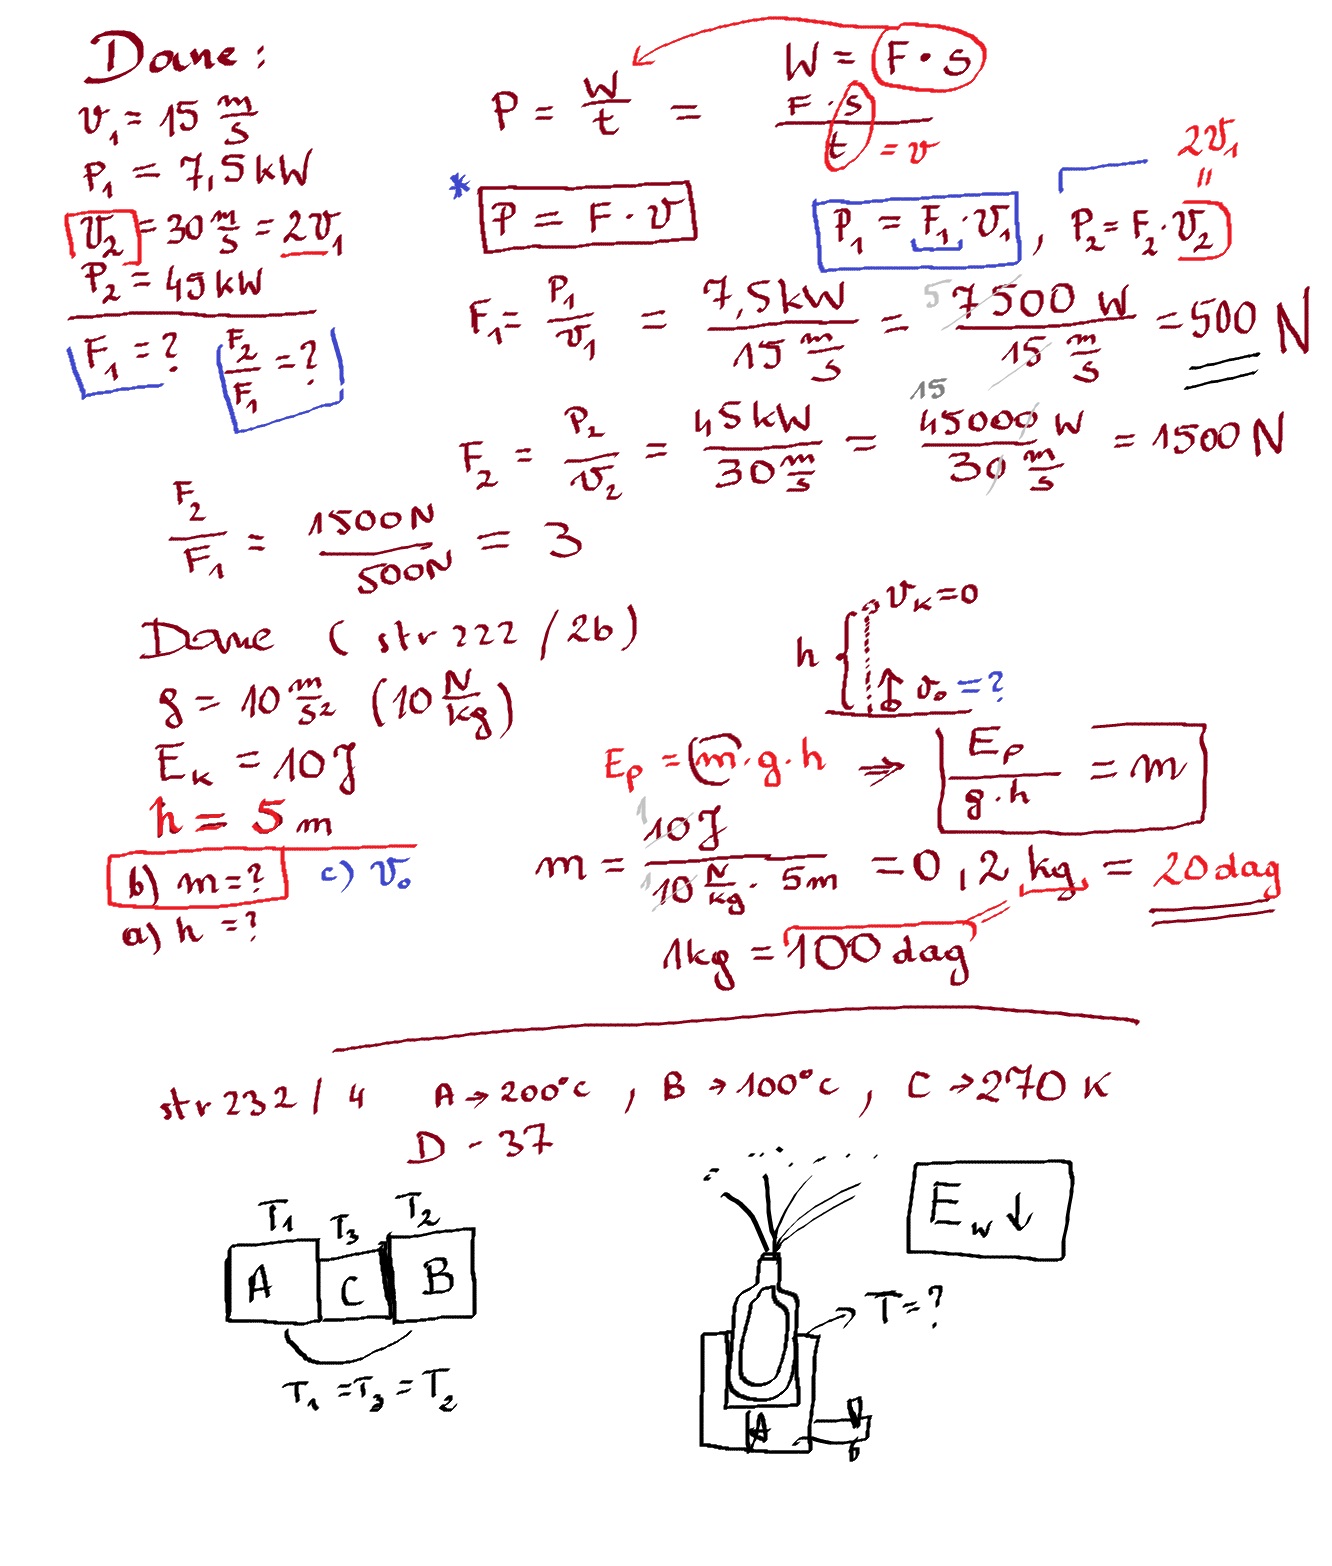 Dane:
v₁ = 15 m/s
P₁ = 7,5 kW
v₂ = 30 m/s = 2v₁
P₂ = 45 kW
F₁ = ? F₂/F₁ = ?
W = F · s
P = W/t = F · s / t = v
* P = F · v
P₁ = F₁ · v₁ , P₂ = F₂ · v₂ = 2v₁
F₁ = P₁/v₁ = 7,5 kW / 15 m/s = 5 7500 W / 15 m/s = 500 N
F₂ = P₂/v₂ = 45 kW / 30 m/s = 15 45000 W / 30 m/s = 1500 N
F₂/F₁ = 1500 N / 500 N = 3
Dane (str 222 / 2b)
g = 10 m/s² (10 N/kg)
E_k = 10 J
h = 5 m
b) m = ? c) v₀
a) h = ?
v_k = 0
h
v₀ = ?
E_p = m · g · h ⇒ E_p / g · h = m
m = 1 10 J / 1 10 N/kg · 5 m = 0,2 kg = 20 dag
1 kg = 100 dag
str 232 / 4 A → 200°C , B → 100°C , C → 270 K
D - 37
T₁ T₃ T₂
A C B
T₁ = T₃ = T₂
E_w ↓
→ T = ?
A